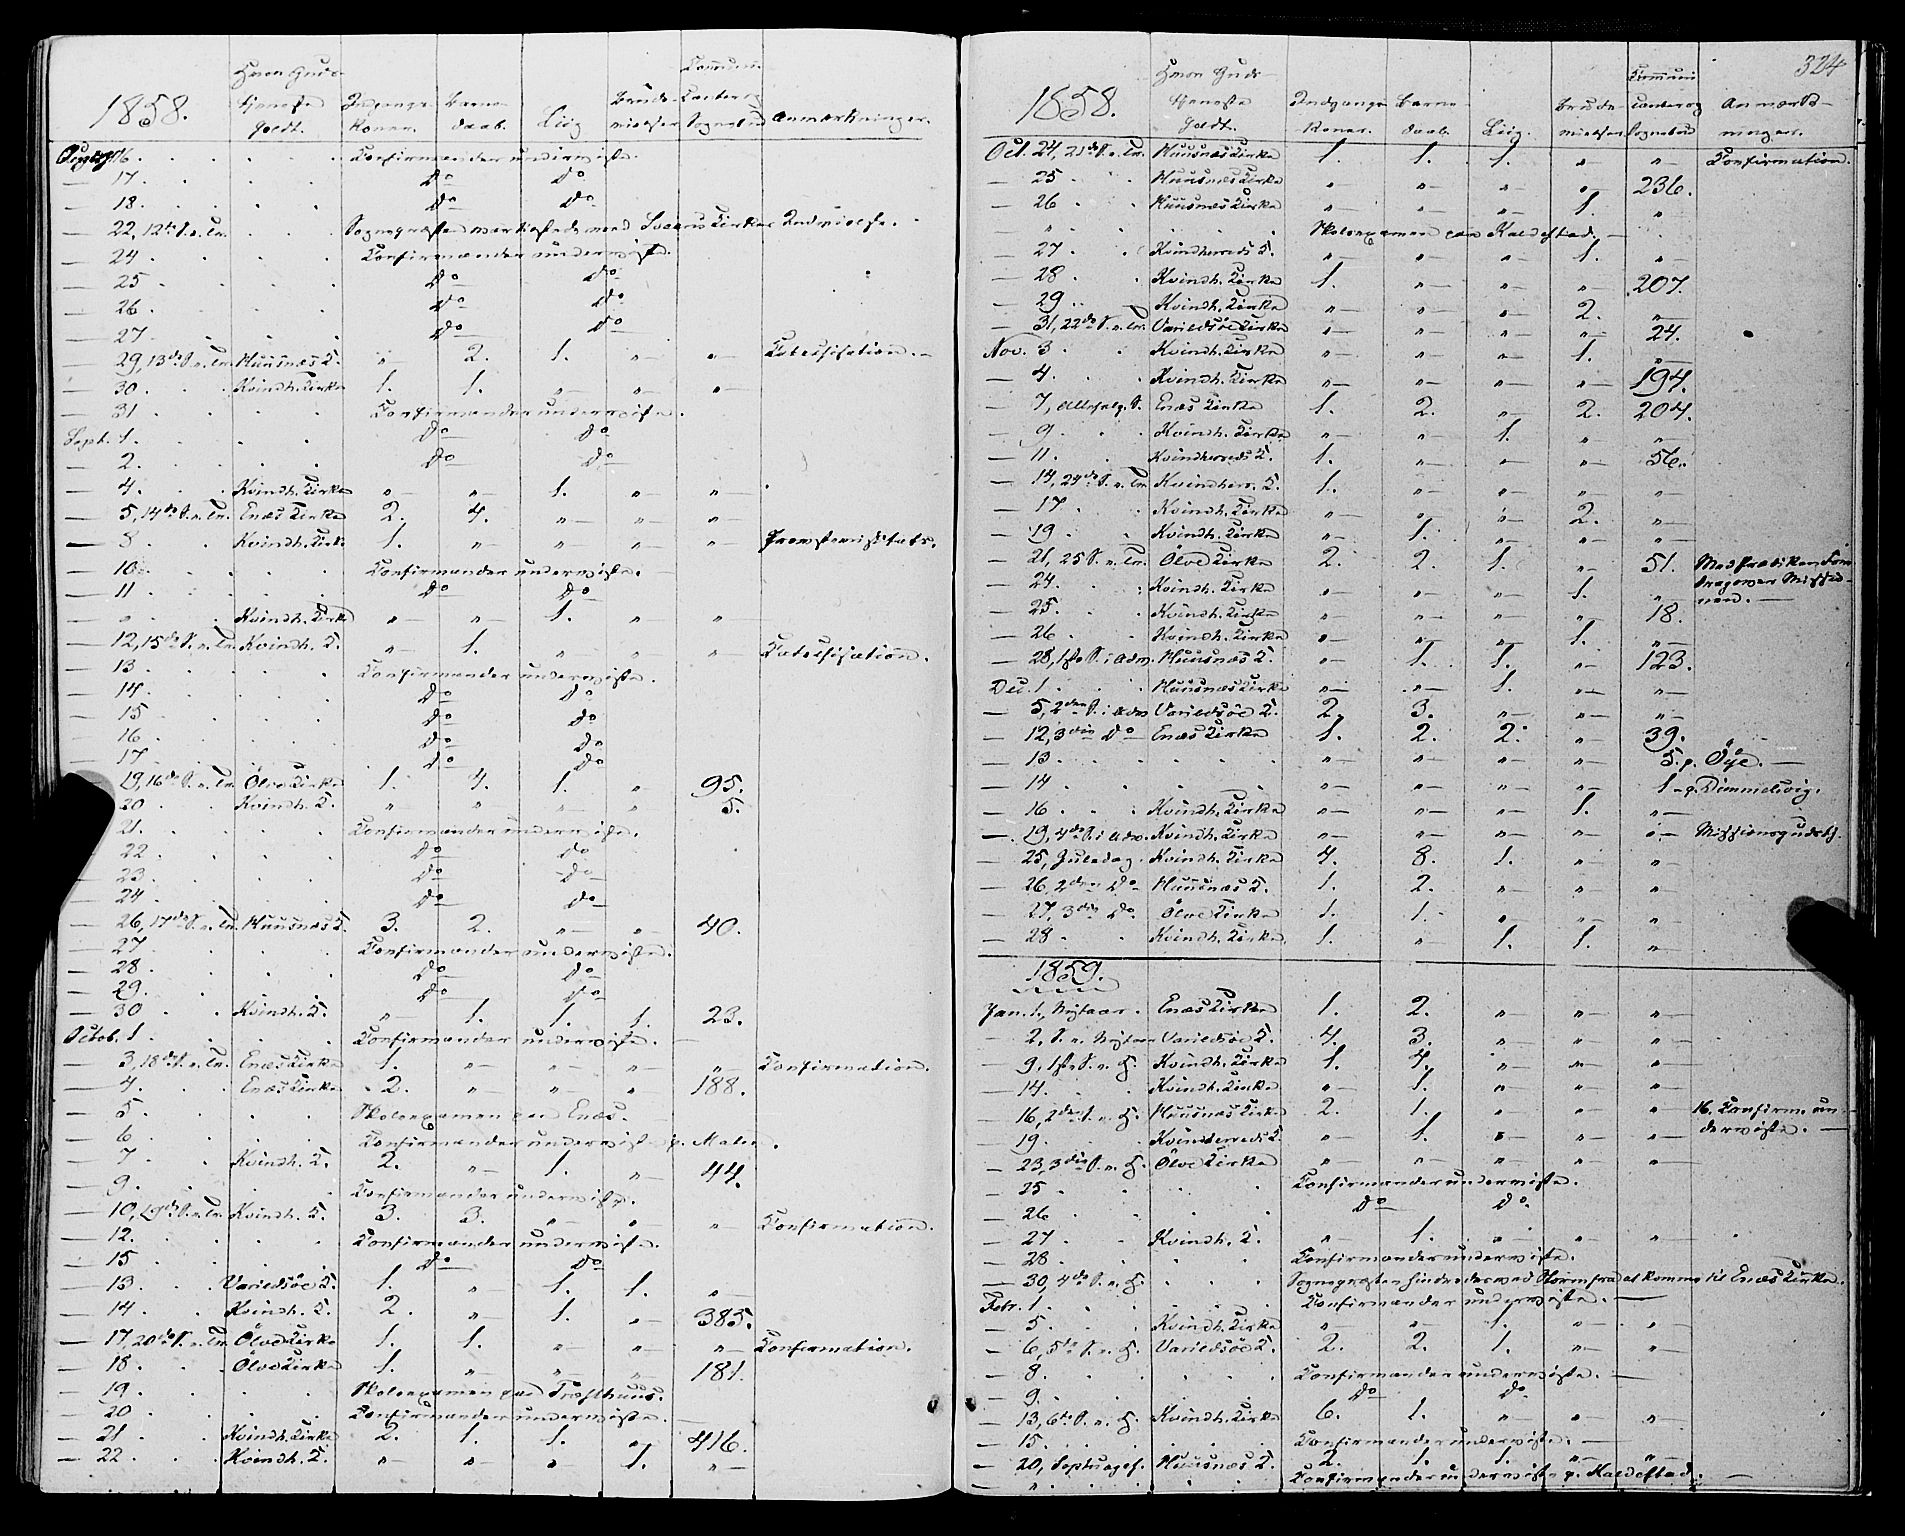 1858.
Hvor Guds- tjeneste holdt. | Indgangs- Koner. | Barne- daab. | Liig | Brude- vielser | Communi- canter og Sognebud | Anmærkninger.
August 16. Confirmander underviste.
— 17. Do Do
— 18. Do Do
— 22, 12te S. e. Tr. Indvielse.
— 24. Confirmander underviste.
— 25 Do Do
— 26. Do Do
— 27. Do Do
— 29, 13de S. e. Tr. Huusnæs K. „ 2. 1. „ „ Catechisation.
— 30. Kvindh. Kirke 1. 1. „ „ „
— 31 Confirmander underviste.
Sept. 1. Do Do
— 2. Do Do
— 4. Kvindh. Kirke „ „ 1. „ „
— 5, 14de S. e. Tr. Enæs Kirke 2. 4. „ „ „
— 8 Kvindh. Kirke 1. „ „ „ „
— 10. Confirmander underviste.
— 11 Do Do
— „ Kvindh. Kirke „ „ 1. „ „
— 12, 15de S. e. Tr. Kvindh. K. „ 1. „ „ „ Catechisation.
— 13 Confirmander underviste.
— 14. Do Do
— 15 Do Do
— 16 Do Do
— 17. Do Do
— 19, 16de S. e. Tr. Ölve Kirke 1. 4. 1. „ 95.
— 20 Kvindh. K. „ „ „ „ 5.
— 21. Confirmander underviste.
— 22 Do Do
— 23 Do Do
— 24 Do Do
— 26, 17de S. e. Tr. Huusnæs K. 3. 2. „ „ 40.
— 27 Confirmander underviste.
— 28 Do Do
— 29. Do Do
— 30 Kvindh. K. „ 1. 1. 1. 23.
Octob. 1 Confirmander underviste.
— 3, 18de S. e. Tr. Enæs Kirke 1. „ „ „ „ Confirmation.
— 4. Enæs Kirke 2. „ „ „ 188.
— 5 Skoleexamen paa Enæs.
— 6 Confirmander underviste p. Malm.
— 7 Kvindh. K. 2. „ 1. „ 44.
— 9. Confirmander underviste.
— 10, 19de S. e. Tr. Kvindh. K. 3. 3. „ „ „ Confirmation.
— 12. Confirmander underviste.
— 15 Do Do
— 13 Varildsöe K. 1. „ 1. 1. „
— 14 Kvindh. K. 2. „ 1. „ 385.
— 17, 20de S. e. Tr. Ölve Kirke 1. 1. „ „ „ Confirmation.
— 18 Ölve Kirke 1. „ „ „ 181.
— 19 Skoleexamen paa
— 20 Confirmander underviste.
— 21 Kvindh. Kirke 2. 1. 1. „ 416.
— 22 Kvindh. K. „ „ „ 1. „
324
1858.
Hvor Guds- tjeneste holdt. | Indgangs- Koner. | Barne- daab. | Liig. | Brude- vielser | Communi- canter og Sognebud | Anmærk- ninger.
Oct. 24, 21de S. e. Tr. Huusnæs Kirke 1. 1. 1. „ „ Confirmation.
— 25 Huusnæs Kirke „ „ „ „ 236.
— 26 Huusnæs Kirke „ „ „ 1. „
„ Skoleexamen paa Kaldestad.
— 27 Kvindherreds K. „ „ „ 1. „
— 28 Kvindh. Kirke 1. „ „ „ 207.
— 29 Kvindh. Kirke „ „ „ 2. „
— 31, 22de S. e. Tr. Varildsöe Kirke „ „ „ „ 24.
Nov. 3 Kvindh. Kirke „ „ „ 1. „
— 4. Kvindh. Kirke „ „ „ „ 194.
— 7, Allehelg. S. Enæs Kirke 1. 2. „ 2. 204.
— 9 Kvindh. Kirke „ „ 1. „ „
— 11. Kvindherreds K. 1. „ „ „ 56.
— 14, 24de S. e. Tr. Kvindherr. K. 1. „ „ „ „
— 17 Kvindh. Kirke „ „ „ 2. „
— 19 Kvindh. Kirke „ 1. „ „ „
— 21, 25 S. e. Tr. Ölve Kirke 2. 2. 1. „ 51.
— 24. Kvindh. Kirke „ „ „ 1. „
— 25 Kvindh. Kirke „ „ „ „ 18.
— 26 Kvindh. Kirke „ „ „ 1. „
— 28, 1ste S. i Adv. Huusnæs K. „ 1. 1. „ 123.
Dec. 1 Huusnæs Kirke „ „ 1. „ „
— 5, 2den S. i Adv Varildsöe K. 2. 3. „ „ „
— 12, 3die Do Enæs Kirke 1. 2. 2. „ 39.
— 13 „ „ „ „ 5. p. Öÿe.
— 14 „ „ „ „ 1 p. Dimmelsvig.
— 16 Kvindh. Kirke „ „ „ 1. „
— 19, 4de S. i Adv. Kvindh. Kirke „ „ „ „ „ Missionsgudstj.
— 25, Juledag Kvindh. Kirke 4. 8. 1. „ „
— 26, 2den Do Huusnæs K. 1. 2. „ „ „
— 27, 3die Do. Ölve Kirke 1. 1. „ „ „
— 28 Kvindh. Kirke 1. „ 1. 1. „
1859.
Jan. 1., Nytaar. Enæs Kirke 1. 2. „ „ „
— 2, S. e. Nytaar Varildsöe K. 4. 3. „ „ „
— 9, 1ste S. e. H. Kvindh. Kirke 1. 4. „ „ „
— 14. Kvindh. Kirke „ 1. „ „ „
— 16, 2den S. e. H. Huusnæs Kirke 2. 1. „ „ „ 16. Confirm. un-
— 19. Kvindherreds K. „ 1. „ „ „ derviste.
— 23, 3die S. e. H. Ölve Kirke „ „ „ „ „
— 25 Confirmander underviste.
— 26 Do Do
— 27 Kvindh. K. „ 1. „ „ „
— 28 Confirmander underviste.
— 30, 4de S. e. H. Sognepræsten hindredes ved Storm fra at komme til Enæs Kirke.
Febr. 1 Confirmander underviste.
— 5. Kvindh. Kirke „ „ 1. „ „
— 6, 5te S. e. H. Varildsöe K. 2. 2. 1. „ „
— 8. Confirmander underviste.
— 9. Do Do
— 13, 6te S. e. H. Kvindh. Kirke 6. 1. „ „ „
— 15. Confirmander underviste.
— 20, Septuages. Huusnæs K. 2. 1. 1. „ „
— „ Confirmander underviste p. Kaldestad.